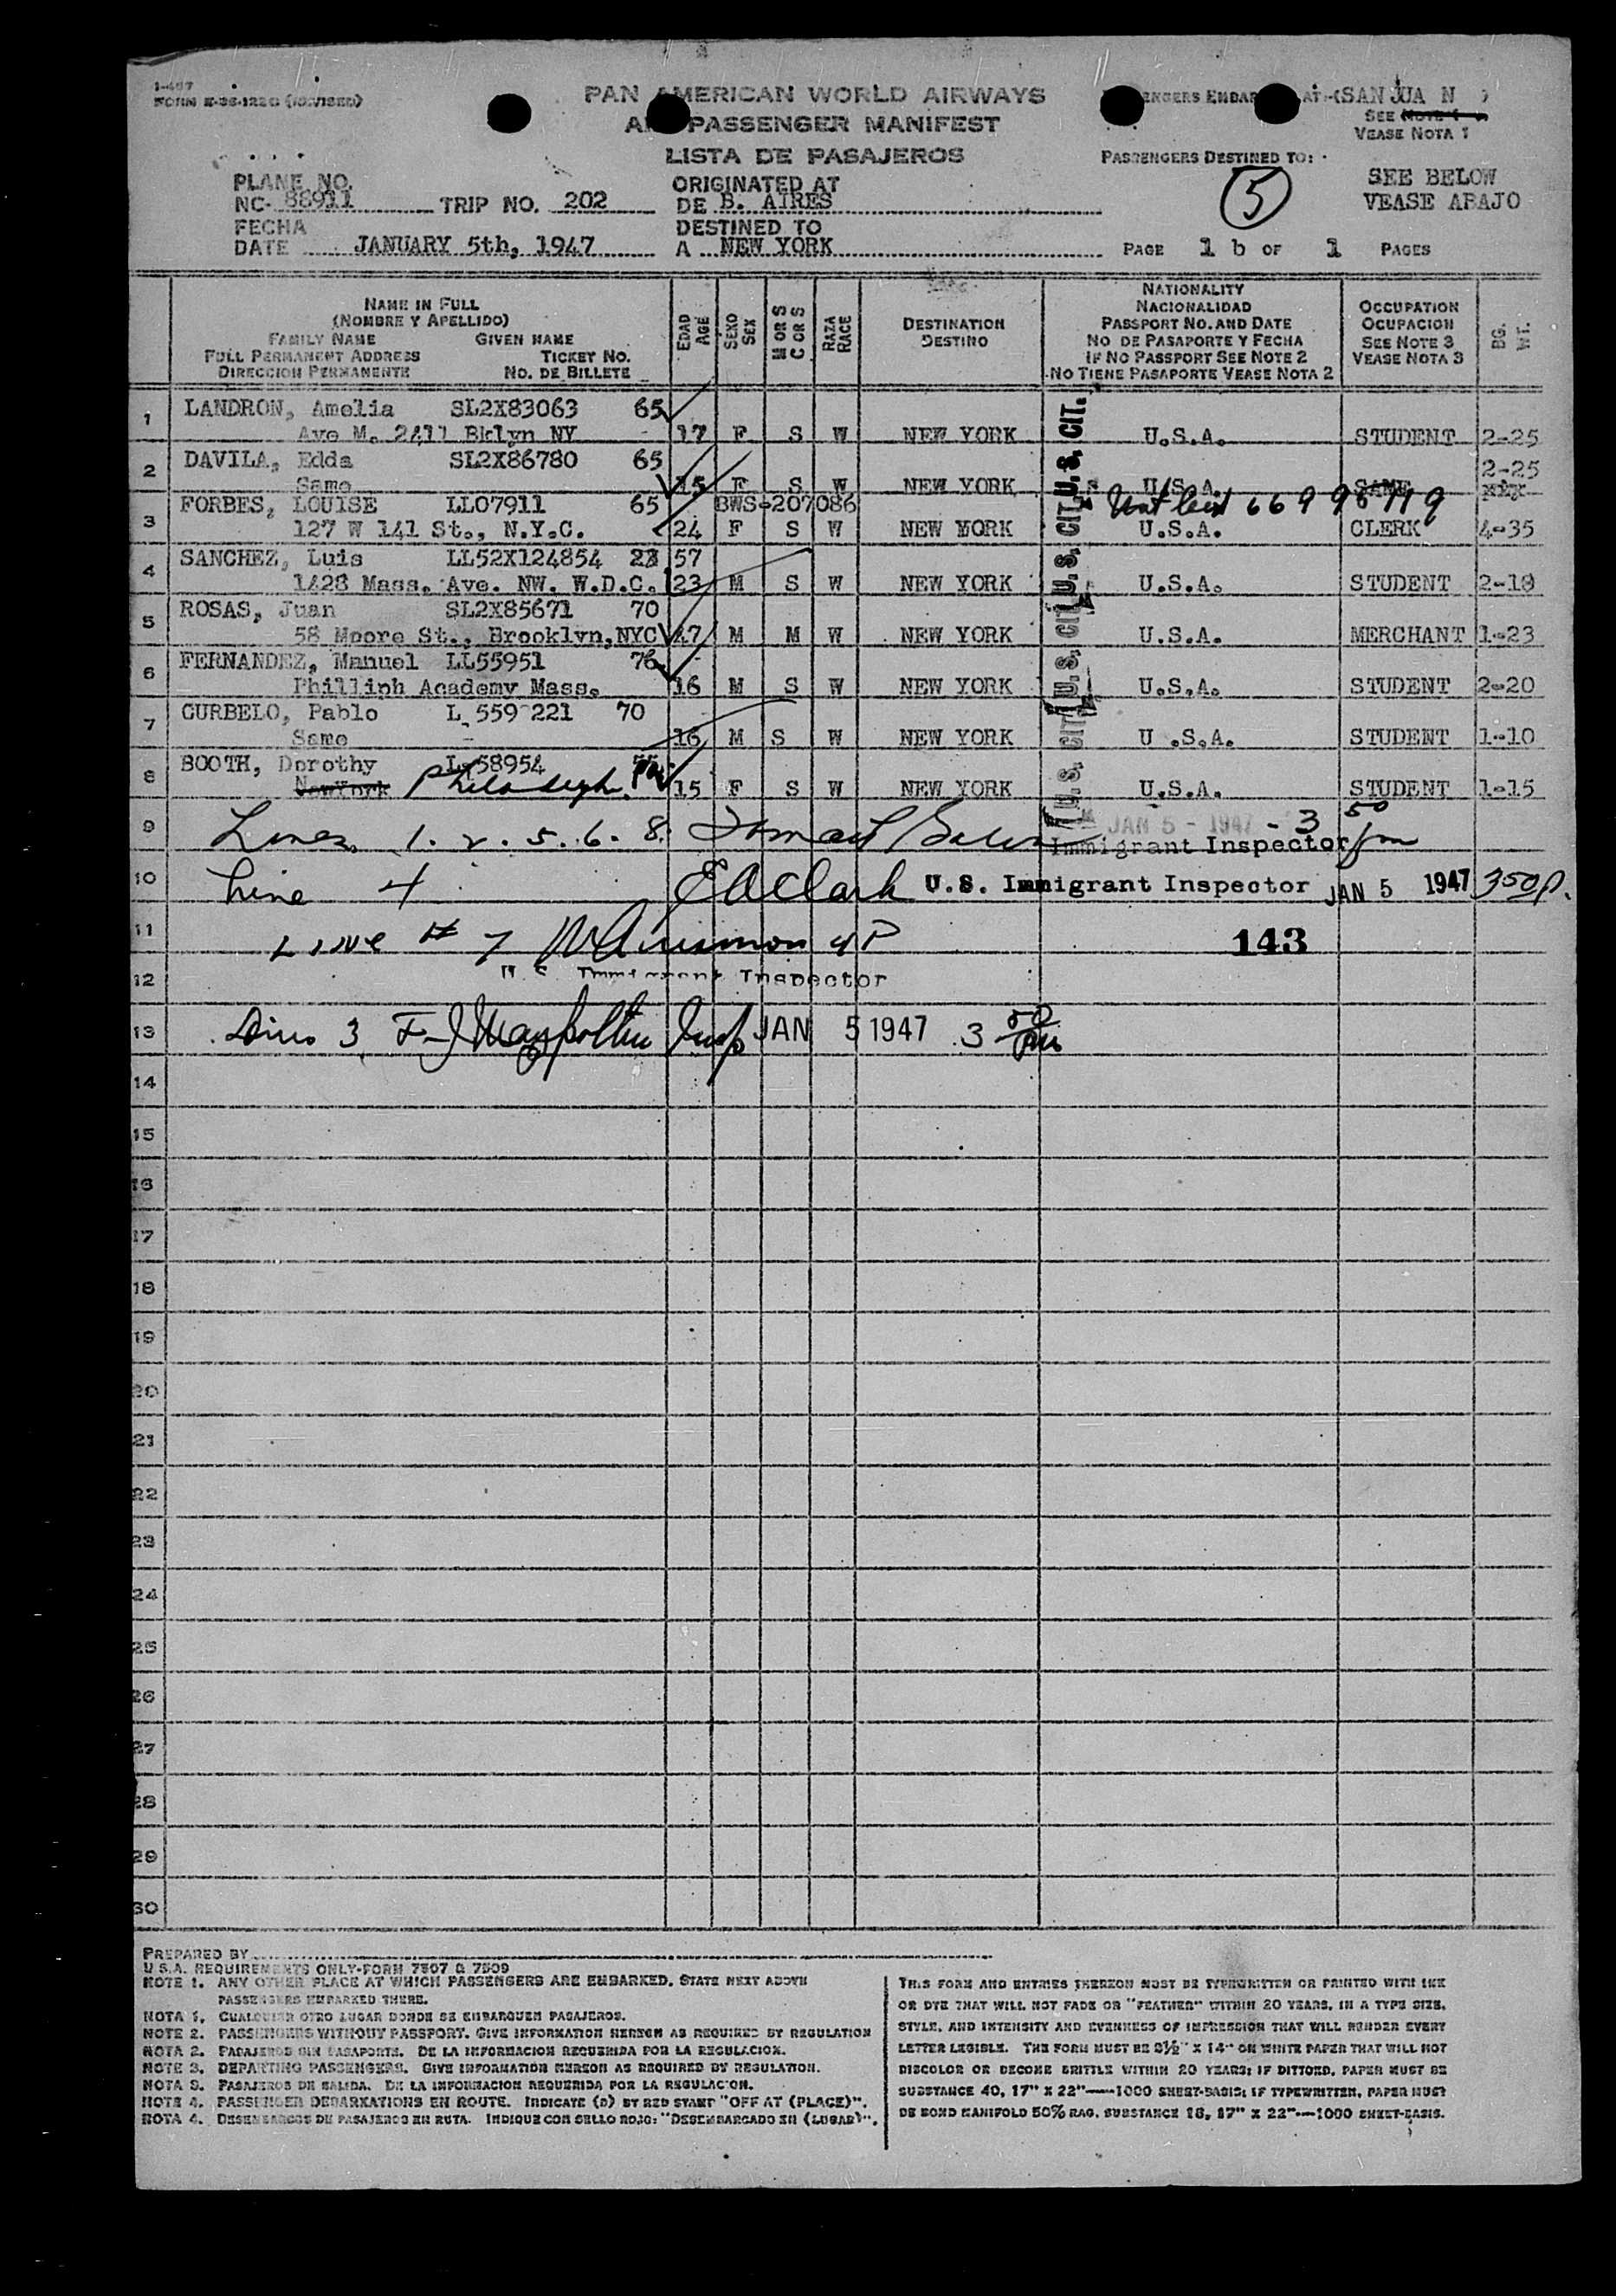 I-467
FORM E-36-122G (REVISED)
PAN AMERICAN WORLD AIRWAYS
PASSENGER MANIFEST
LISTA DE PASAJEROS
(SAN JUAN)
SEE NOTE 1
VEASE NOTA 1
PASSENGERS DESTINED TO:
SEE BELOW
VEASE ABAJO
5
PLANE NO.
NC- 88911 TRIP NO. 202
FECHA
DATE JANUARY 5th, 1947
ORIGINATED AT
DE B. AIRES
DESTINED TO
A NEW YORK
PAGE 1 b OF 1 PAGES
NAME IN FULL
(NOMBRE Y APELLIDO)
FAMILY NAME GIVEN NAME
FULL PERMANENT ADDRESS TICKET NO.
DIRECCION PERMANENTE NO. DE BILLETE
EDAD AGE
SEXO SEX
M OR S C OR S
RAZA RACE
DESTINATION
DESTINO
NATIONALITY
NACIONALIDAD
PASSPORT NO. AND DATE
NO DE PASAPORTE Y FECHA
IF NO PASSPORT SEE NOTE 2
NO TIENE PASAPORTE VEASE NOTA 2
OCCUPATION
OCUPACION
SEE NOTE 3
VEASE NOTA 3
BG. WT.
1 LANDRON, Amelia SL2X83063 65
Ave M. 2411 Bklyn NY 17 F S W NEW YORK U.S. CIT. U.S.A. STUDENT 2-25
2 DAVILA, Edda SL2X86780 65 2-25
Same 15 F S W NEW YORK U.S. CIT. U.S.A. SAME
3 FORBES, LOUISE LL07911 65 BWS-207086 669 98719
127 W 141 St., N.Y.C. 24 F S W NEW YORK U.S.A. CLERK 4-35
4 SANCHEZ, Luis LL52X124854 23 57
1428 Mass. Ave. NW. W.D.C. 23 M S W NEW YORK U.S. CIT U.S.A. STUDENT 2-18
5 ROSAS, Juan SL2X85671 70
58 Moore St., Brooklyn,NYC 47 M M W NEW YORK U.S. CIT U.S.A. MERCHANT 1-23
6 FERNANDEZ, Manuel LL55951 76
Philliph Academy Mass. 16 M S W NEW YORK U.S.A. STUDENT 2-20
7 GURBELO, Pablo L 559 221 70
Same 16 M S W NEW YORK U.S. CIT U .S.A. STUDENT 1-10
8 BOOTH, Dorothy L 58954
NewYork 15 F S W NEW YORK U.S.A. STUDENT 1-15
9 Lines 1. 2. 5. 6. 8. JAN 5 - 1947 - 3 50 pm
Immigrant Inspector
10 Line 4 E A Clark U.S. Immigrant Inspector JAN 5 1947 350p.
11 Line # 7 4P 143
12 U.S. Immigrant Inspector
13 Line 3 Insp JAN 5 1947 3 50 pm
14
15
16
17
18
19
20
21
22
23
24
25
26
27
28
29
30
PREPARED BY
U.S.A. REQUIREMENTS ONLY-FORM 7507 & 7509
NOTE 1. ANY OTHER PLACE AT WHICH PASSENGERS ARE EMBARKED, STATE NEXT ABOVE
PASSENGERS EMBARKED THERE.
NOTA 1. CUALQUIER OTRO LUGAR DONDE SE EMBARQUEN PASAJEROS.
NOTE 2. PASSENGERS WITHOUT PASSPORT. GIVE INFORMATION HEREON AS REQUIRED BY REGULATION
NOTA 2. PASAJEROS SIN PASAPORTE. DE LA INFORMACION REQUERIDA POR LA REGULACION.
NOTE 3. DEPARTING PASSENGERS. GIVE INFORMATION HEREON AS REQUIRED BY REGULATION.
NOTA 3. PASAJEROS DE SALIDA. DE LA INFORMACION REQUERIDA POR LA REGULACION.
NOTE 4. PASSENGER DEBARKATIONS EN ROUTE. INDICATE (D) BY RED STAMP "OFF AT (PLACE)".
NOTA 4. DESEMBARCOS DE PASAJEROS EN RUTA. INDIQUE CON SELLO ROJO: "DESEMBARCADO EN (LUGAR)".
THIS FORM AND ENTRIES THEREON MUST BE TYPEWRITTEN OR PRINTED WITH INK
OR DYE THAT WILL NOT FADE OR "FEATHER" WITHIN 20 YEARS, IN A TYPE SIZE,
STYLE, AND INTENSITY AND EVENNESS OF IMPRESSION THAT WILL RENDER EVERY
LETTER LEGIBLE. THE FORM MUST BE 8½" X 14" ON WHITE PAPER THAT WILL NOT
DISCOLOR OR BECOME BRITTLE WITHIN 20 YEARS; IF DITTOED, PAPER MUST BE
SUBSTANCE 40, 17" X 22"—1000 SHEET-BASIS; IF TYPEWRITTEN, PAPER MUST
BE BOND MANIFOLD 50% RAG, SUBSTANCE 16, 17" X 22"—1000 SHEET-BASIS.